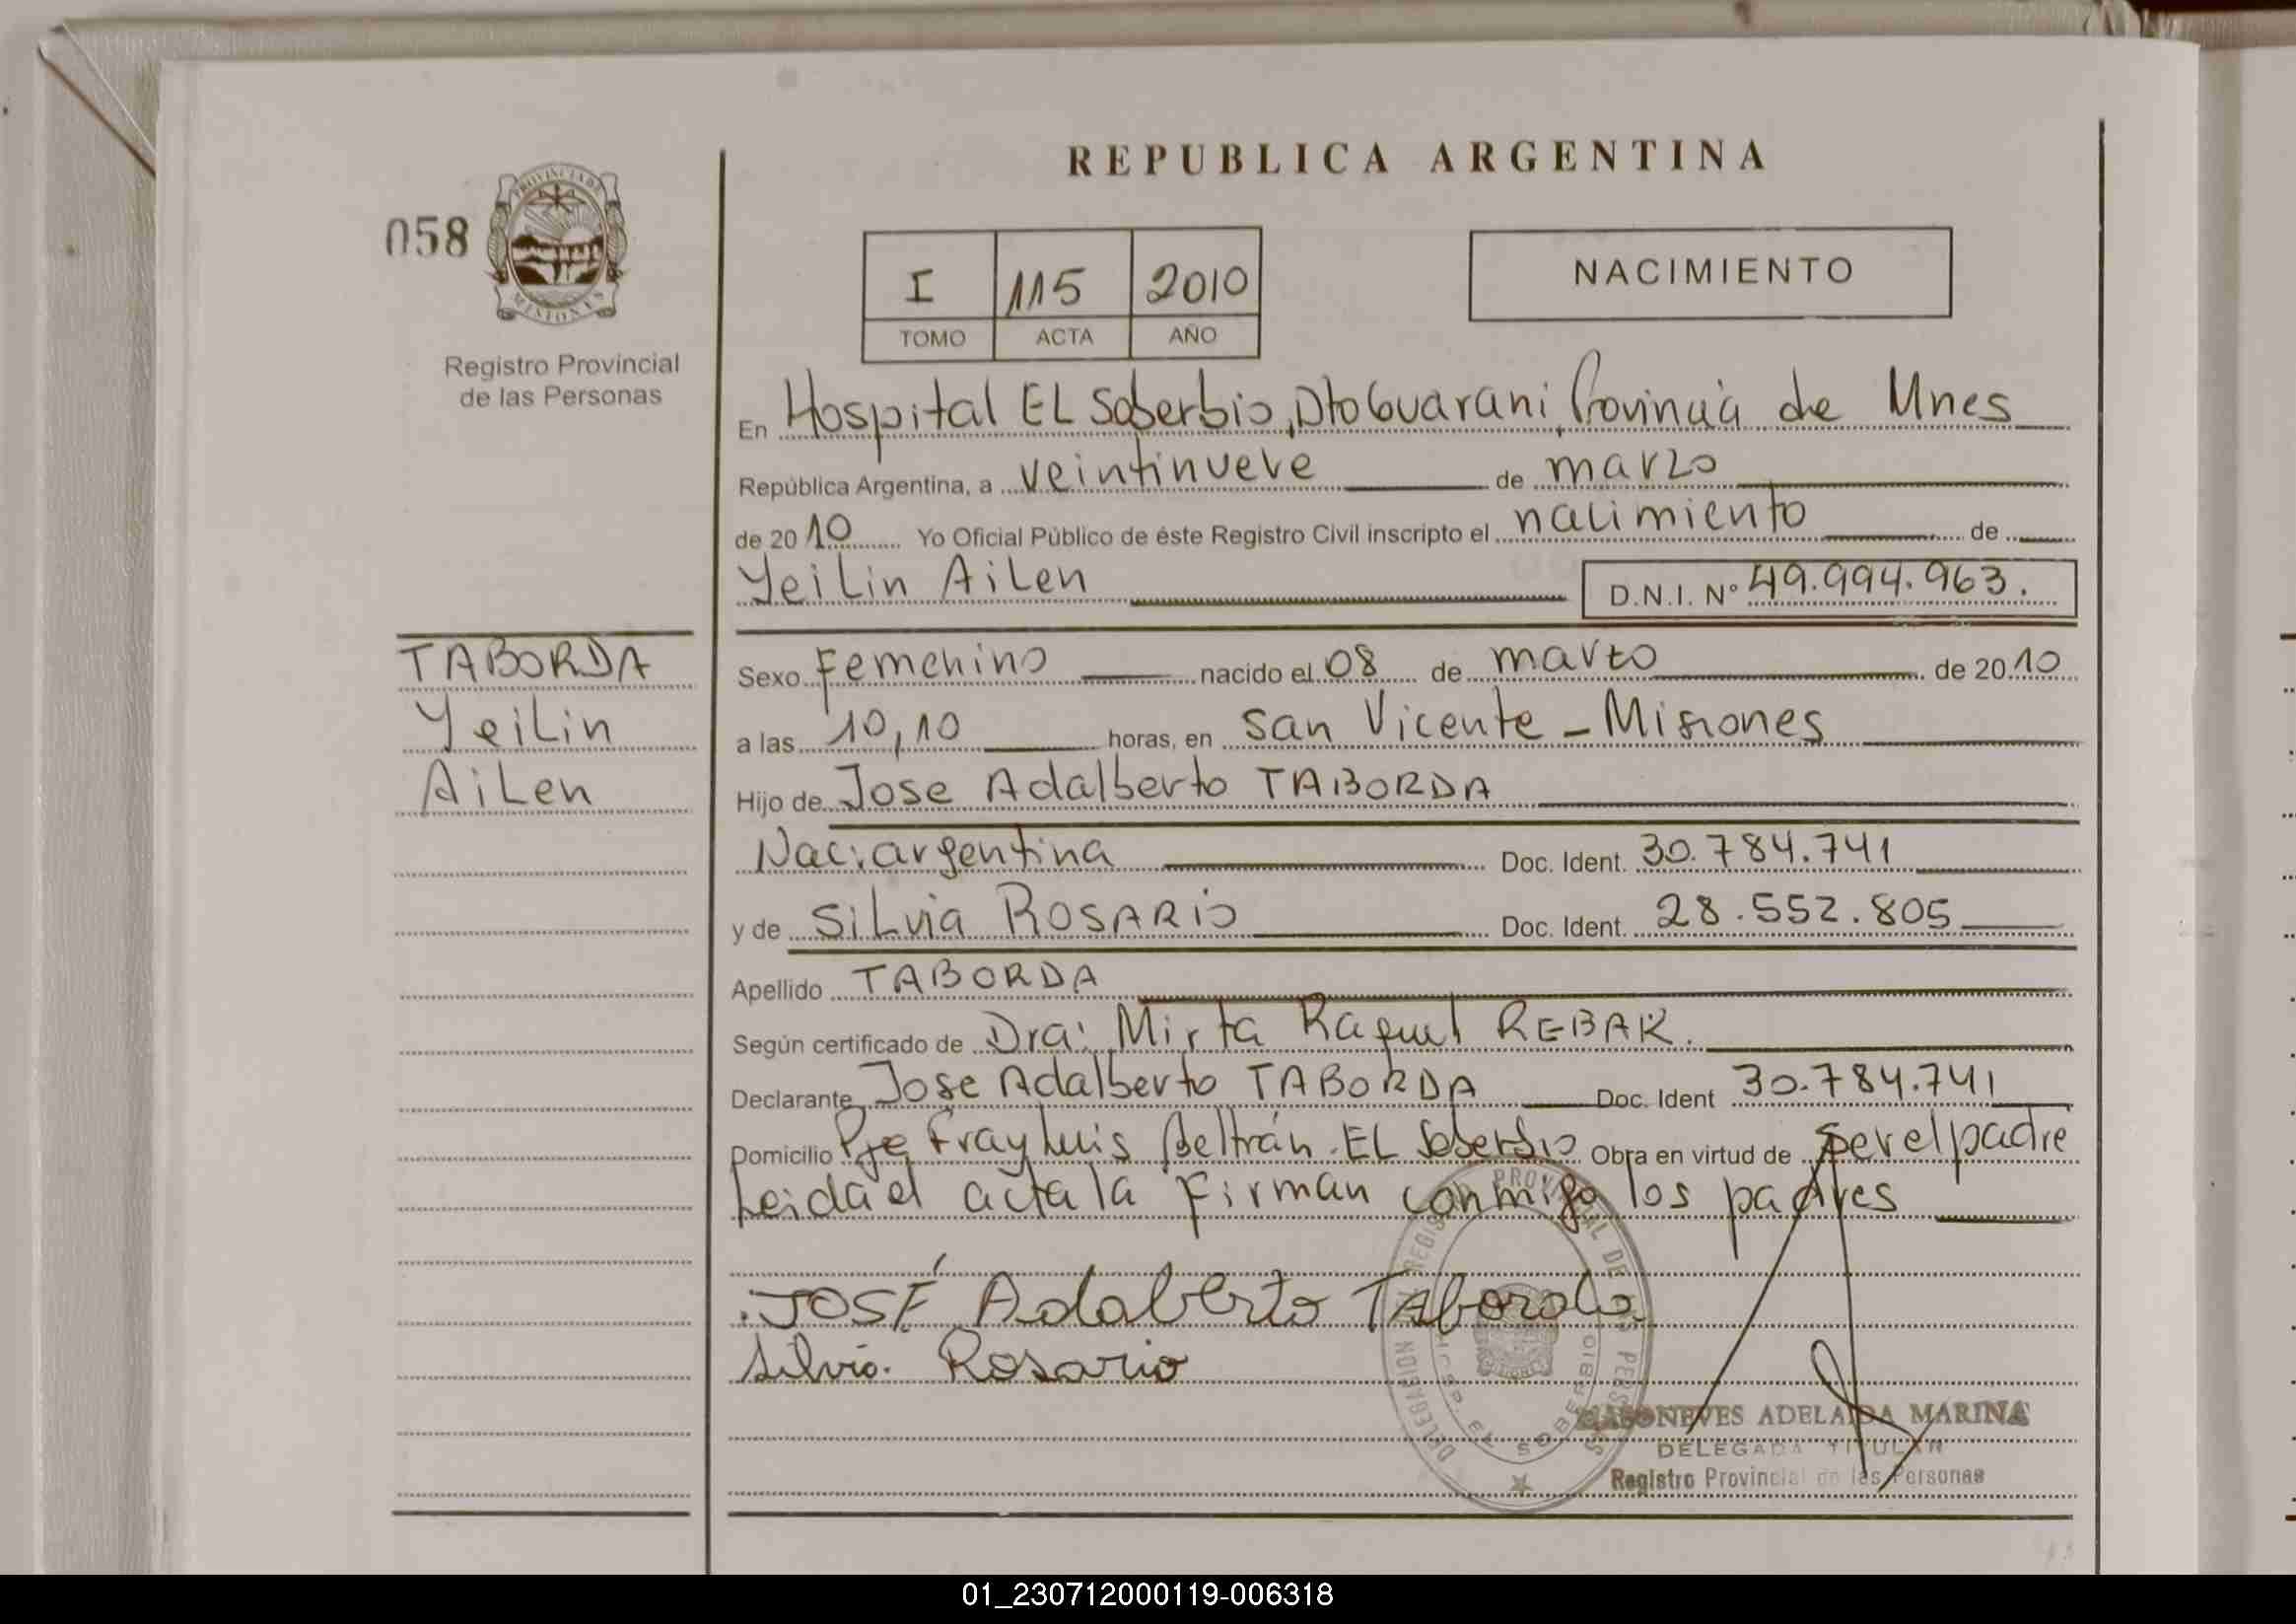 REPUBLICA ARGENTINA
058
PROVINCIA DE
MISIONES
Registro Provincial
de las Personas
I 115 2010
TOMO ACTA AÑO
NACIMIENTO
En Hospital EL Soberbio, Dto Guarani, Provincia de Mnes
República Argentina, a veintinueve de marzo
de 2010 Yo Oficial Público de éste Registro Civil inscripto el nacimiento de
Yeilin Ailen D.N.I. Nº 49.994.963.
TABORDA
Yeilin
Ailen
Sexo Femenino nacido el 08 de marzo de 2010
a las 10,10 horas, en San Vicente - Misiones
Hijo de Jose Adalberto TABORDA
Nac: argentina Doc. Ident. 30.784.741
y de Silvia ROSARIO Doc. Ident. 28.552.805
Apellido TABORDA
Según certificado de Dra: Mirta Raquel REBAK.
Declarante Jose Adalberto TABORDA Doc. Ident 30.784.741
Domicilio Pje Fray Luis Beltrán. EL Soberbio Obra en virtud de ser el padre
Leida el acta la firman conmigo los padres
JOSÉ Adalberto Taborda
Silvia Rosario
DELEGACION REGISTRO PROVINCIAL DE LAS PERSONAS
EL SOBERBIO
NEVES ADELAIDA MARINA
DELEGADA TITULAR
Registro Provincial de las Personas
01_230712000119-006318